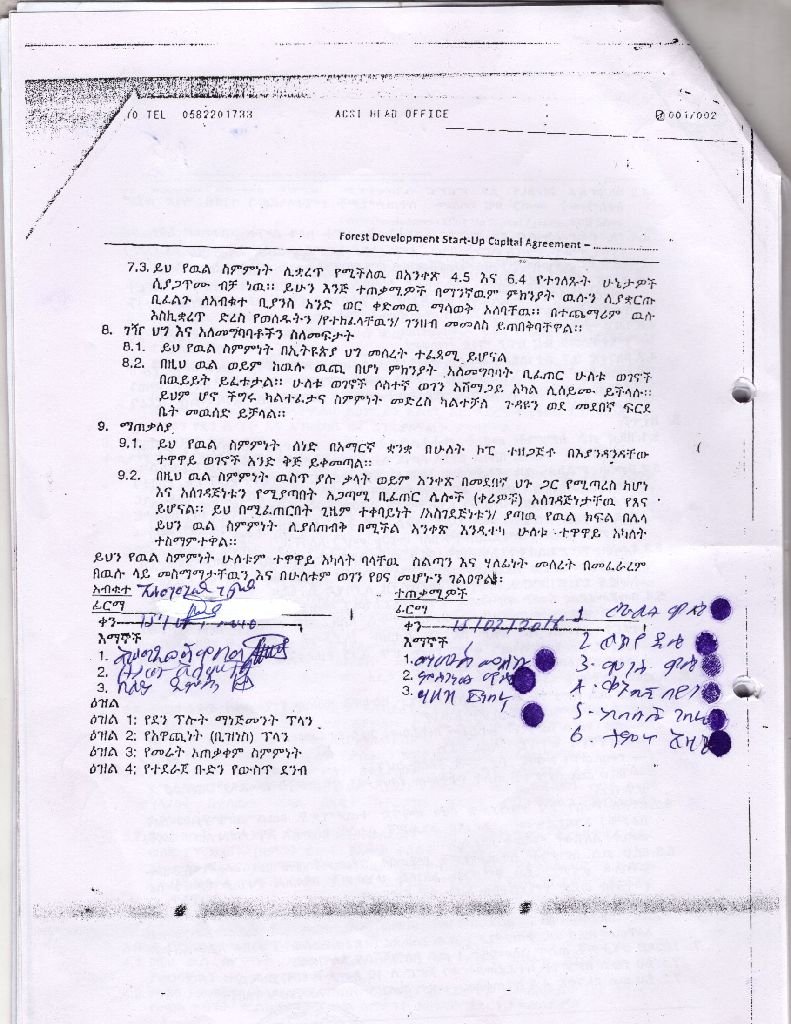 TEL 0582201733 ACSI HEAD OFFICE 001/002
Forest Development Start-Up Capital Agreement – ................
7.3. ይህ የዉል ስምምነት ሊቋረጥ የሚችለዉ በአንቀጽ 4.5 እና 6.4 የተገለጹት ሁኔታዎች
ሲያጋጥሙ ብቻ ነዉ፡፡ ይሁን እንጅ ተጠቃሚዎች በማንኛዉም ምክንያት ዉሉን ሊያቋርጡ
ቢፈልጉ ለአብቁተ ቢያንስ አንድ ወር ቀድመዉ ማሳወቅ አለባቸዉ፡፡ በተጨማሪም ዉሉ
እስኪቋረጥ ድረስ የወሰዱትን /የተከፈላቸዉን/ ገንዘብ መመለስ ይጠበቅባቸዋል፡፡
8. ገዥ ህግ እና አለመግባባቶችን ስለመፍታት
8.1. ይህ የዉል ስምምነት በኢትዩጵያ ህግ መሰረት ተፈጻሚ ይሆናል
8.2. በዚህ ዉል ወይም ከዉሉ ዉጪ በሆነ ምክንያት አለመግባባት ቢፈጠር ሁለቱ ወገኖች
በዉይይት ይፈቱታል፡፡ ሁለቱ ወገኖች ሶስተኛ ወገን አሸማጋይ አካል ሊሰይሙ ይችላሉ፡፡
ይህም ሆኖ ችግሩ ካልተፈታና ስምምነት መድረስ ካልተቻለ ጉዳዩን ወደ መደበኛ ፍርደ
ቤት መዉሰድ ይቻላል፡፡
9. ማጠቃለያ
9.1. ይህ የዉል ስምምነት ሰነድ በአማርኛ ቋንቋ በሁለት ኮፒ ተዘጋጅቶ በእያንዳንዳቸው
ተዋዋይ ወገኖች አንድ ቅጅ ይቀመጣል፡፡
9.2. በዚህ ዉል ስምምነት ዉስጥ ያሉ ቃላት ወይም አንቀጽ በመደበኛ ህጉ ጋር የሚጣረስ ከሆነ
እና አስገዳጅነቱን የሚያጣበት አጋጣሚ ቢፈጠር ሌሎች (ቀሪዎች) አስገዳጅነታቸዉ የጸና
ይሆናል፡፡ ይህ በሚፈጠርበት ጊዜም ተቀባይነት /አስገደጅነቱን/ ያጣዉ የዉል ክፍል በሌላ
ይህን ዉል ስምምነት ሊያስጠብቅ በሚችል አንቀጽ እንዲተካ ሁለቱ ተዋዋይ አካለት
ተስማምተዋል፡፡
ይህን የዉል ስምምነት ሁለቱም ተዋዋይ አካላት ባላቸዉ ስልጣን እና ሃለፊነት መሰረት በመፈራረም
በዉሉ ላይ መስማማታቸዉን እና በሁለቱም ወገን የፀና መሆኑን ገልፀዋል፡
አብቁተ
ፊርማ
ቀን
እማኞች
1.
2.
3.
ተጠቃሚዎች
ፊርማ
ቀን
እማኞች
1.
2.
3.
1
2
3.
4.
5.
6.
ዕዝል
ዕዝል 1: የደን ፕሎት ማነጅመንት ፕላን
ዕዝል 2: የአዋጪነት (ቢዝነስ) ፕላን
ዕዝል 3: የመሬት አጠቃቀም ስምምነት
ዕዝል 4; የተደራጀ ቡድን የውስጥ ደንብ